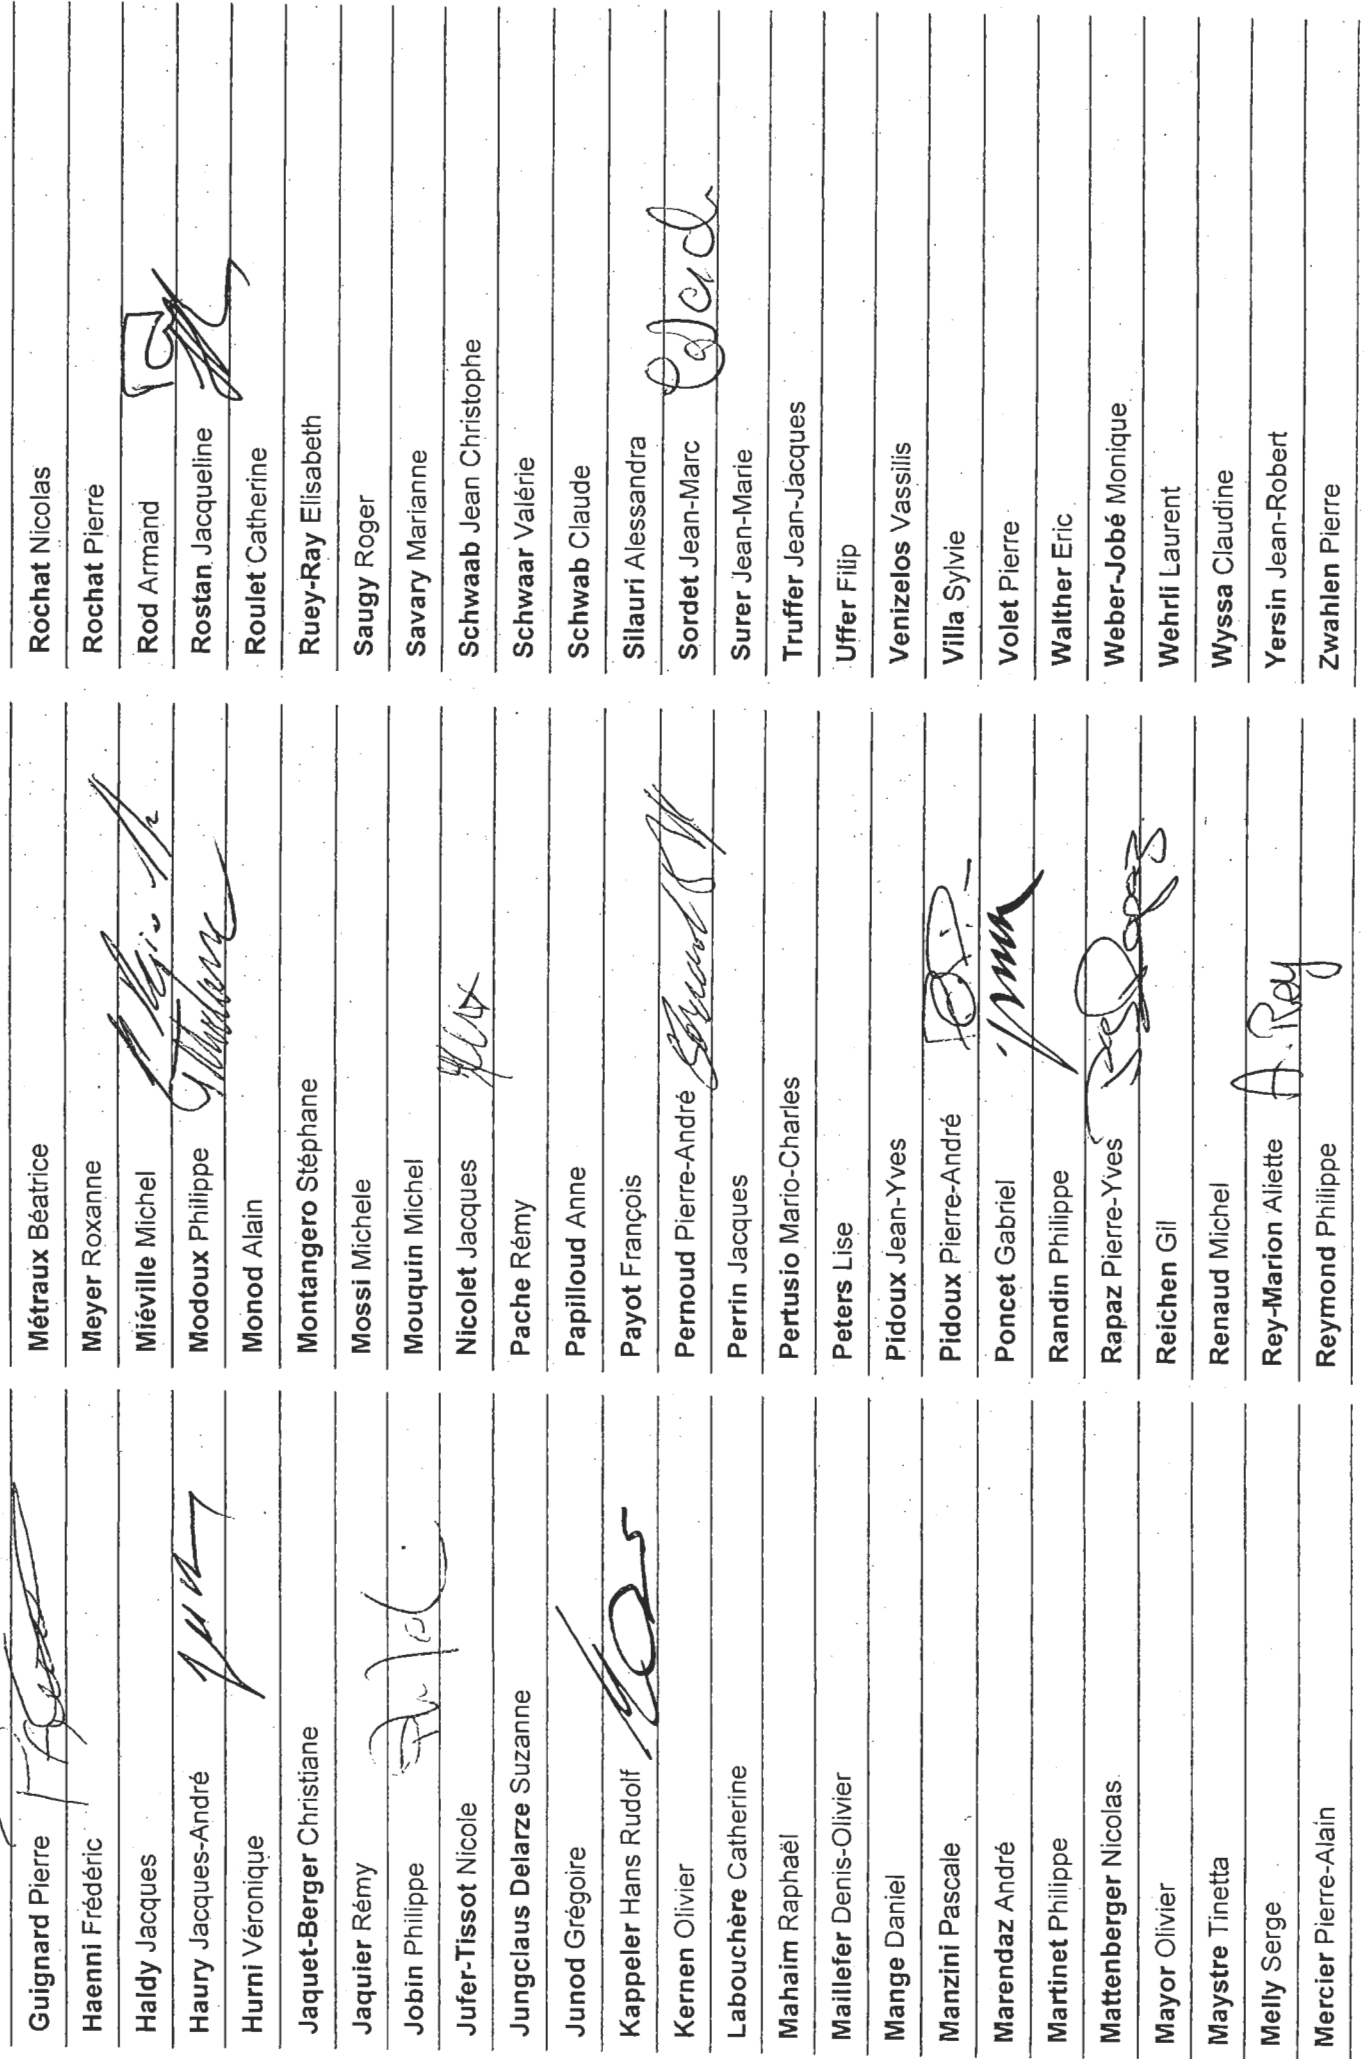 Guignard Pierre
Haenni Frédéric
Haldy Jacques
Haury Jacques-André
Hurni Véronique
Jaquet-Berger Christiane
Jaquier Rémy
Jobin Philippe
Jufer-Tissot Nicole
Jungclaus Delarze Suzanne
Junod Grégoire
Kappeler Hans Rudolf
Kernen Olivier
Labouchère Catherine
Mahaim Raphaël
Maillefer Denis-Olivier
Mange Daniel
Manzini Pascale
Marendaz André
Martinet Philippe
Mattenberger Nicolas
Mayor Olivier
Maystre Tinetta
Melly Serge
Mercier Pierre-Alain
Métraux Béatrice
Meyer Roxanne
Miéville Michel
Modoux Philippe
Monod Alain
Montangero Stéphane
Mossi Michele
Mouquin Michel
Nicolet Jacques
Pache Rémy
Papilloud Anne
Payot François
Pernoud Pierre-André
Perrin Jacques
Pertusio Mario-Charles
Peters Lise
Pidoux Jean-Yves
Pidoux Pierre-André
Poncet Gabriel
Randin Philippe
Rapaz Pierre-Yves
Reichen Gil
Renaud Michel
Rey-Marion Aliette A. Rey
Reymond Philippe
Rochat Nicolas
Rochat Pierre
Rod Armand
Rostan Jacqueline
Roulet Catherine
Ruey-Ray Elisabeth
Saugy Roger
Savary Marianne
Schwaab Jean Christophe
Schwaar Valérie
Schwab Claude
Silauri Alessandra
Sordet Jean-Marc
Surer Jean-Marie
Truffer Jean-Jacques
Uffer Filip
Venizelos Vassilis
Villa Sylvie
Volet Pierre
Walther Eric
Weber-Jobé Monique
Wehrli Laurent
Wyssa Claudine
Yersin Jean-Robert
Zwahlen Pierre